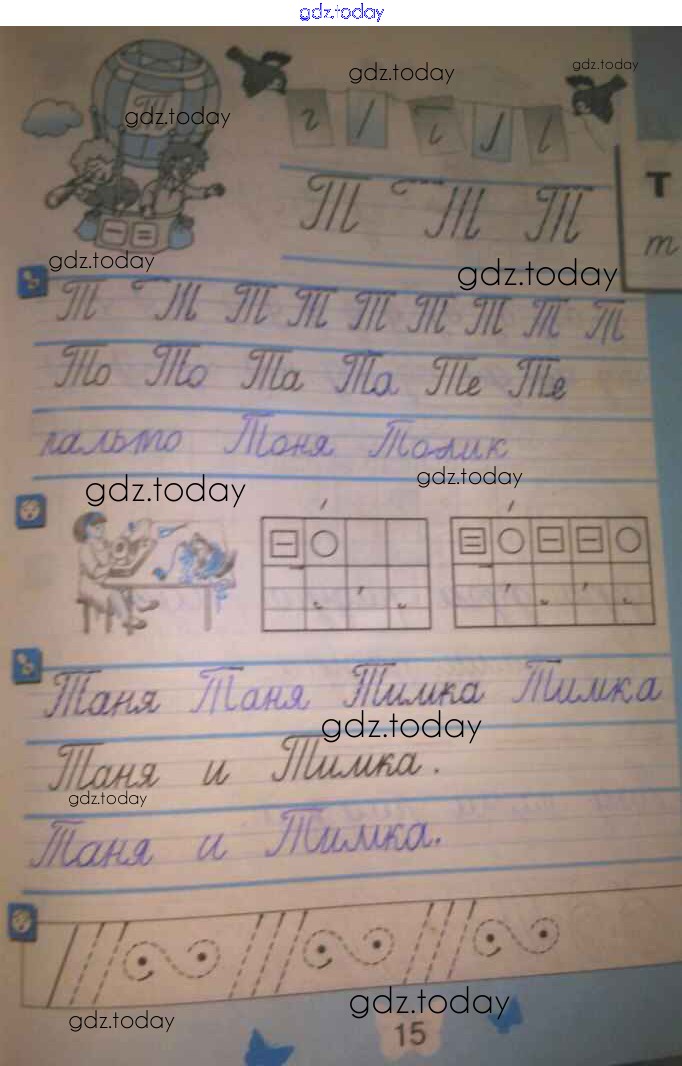 gdz.today
gdz.today
gdz.today
gdz.today
Т
г
Т Т Т
Т
т
gdz.today
gdz.today
Т Т Т Т Т Т Т Т Т
То То Та Та Те Те
пальто Тоня Толик
gdz.today
gdz.today
Таня Таня Тимка Тимка
gdz.today
Таня и Тимка.
gdz.today
Таня и Тимка.
gdz.today
gdz.today
15